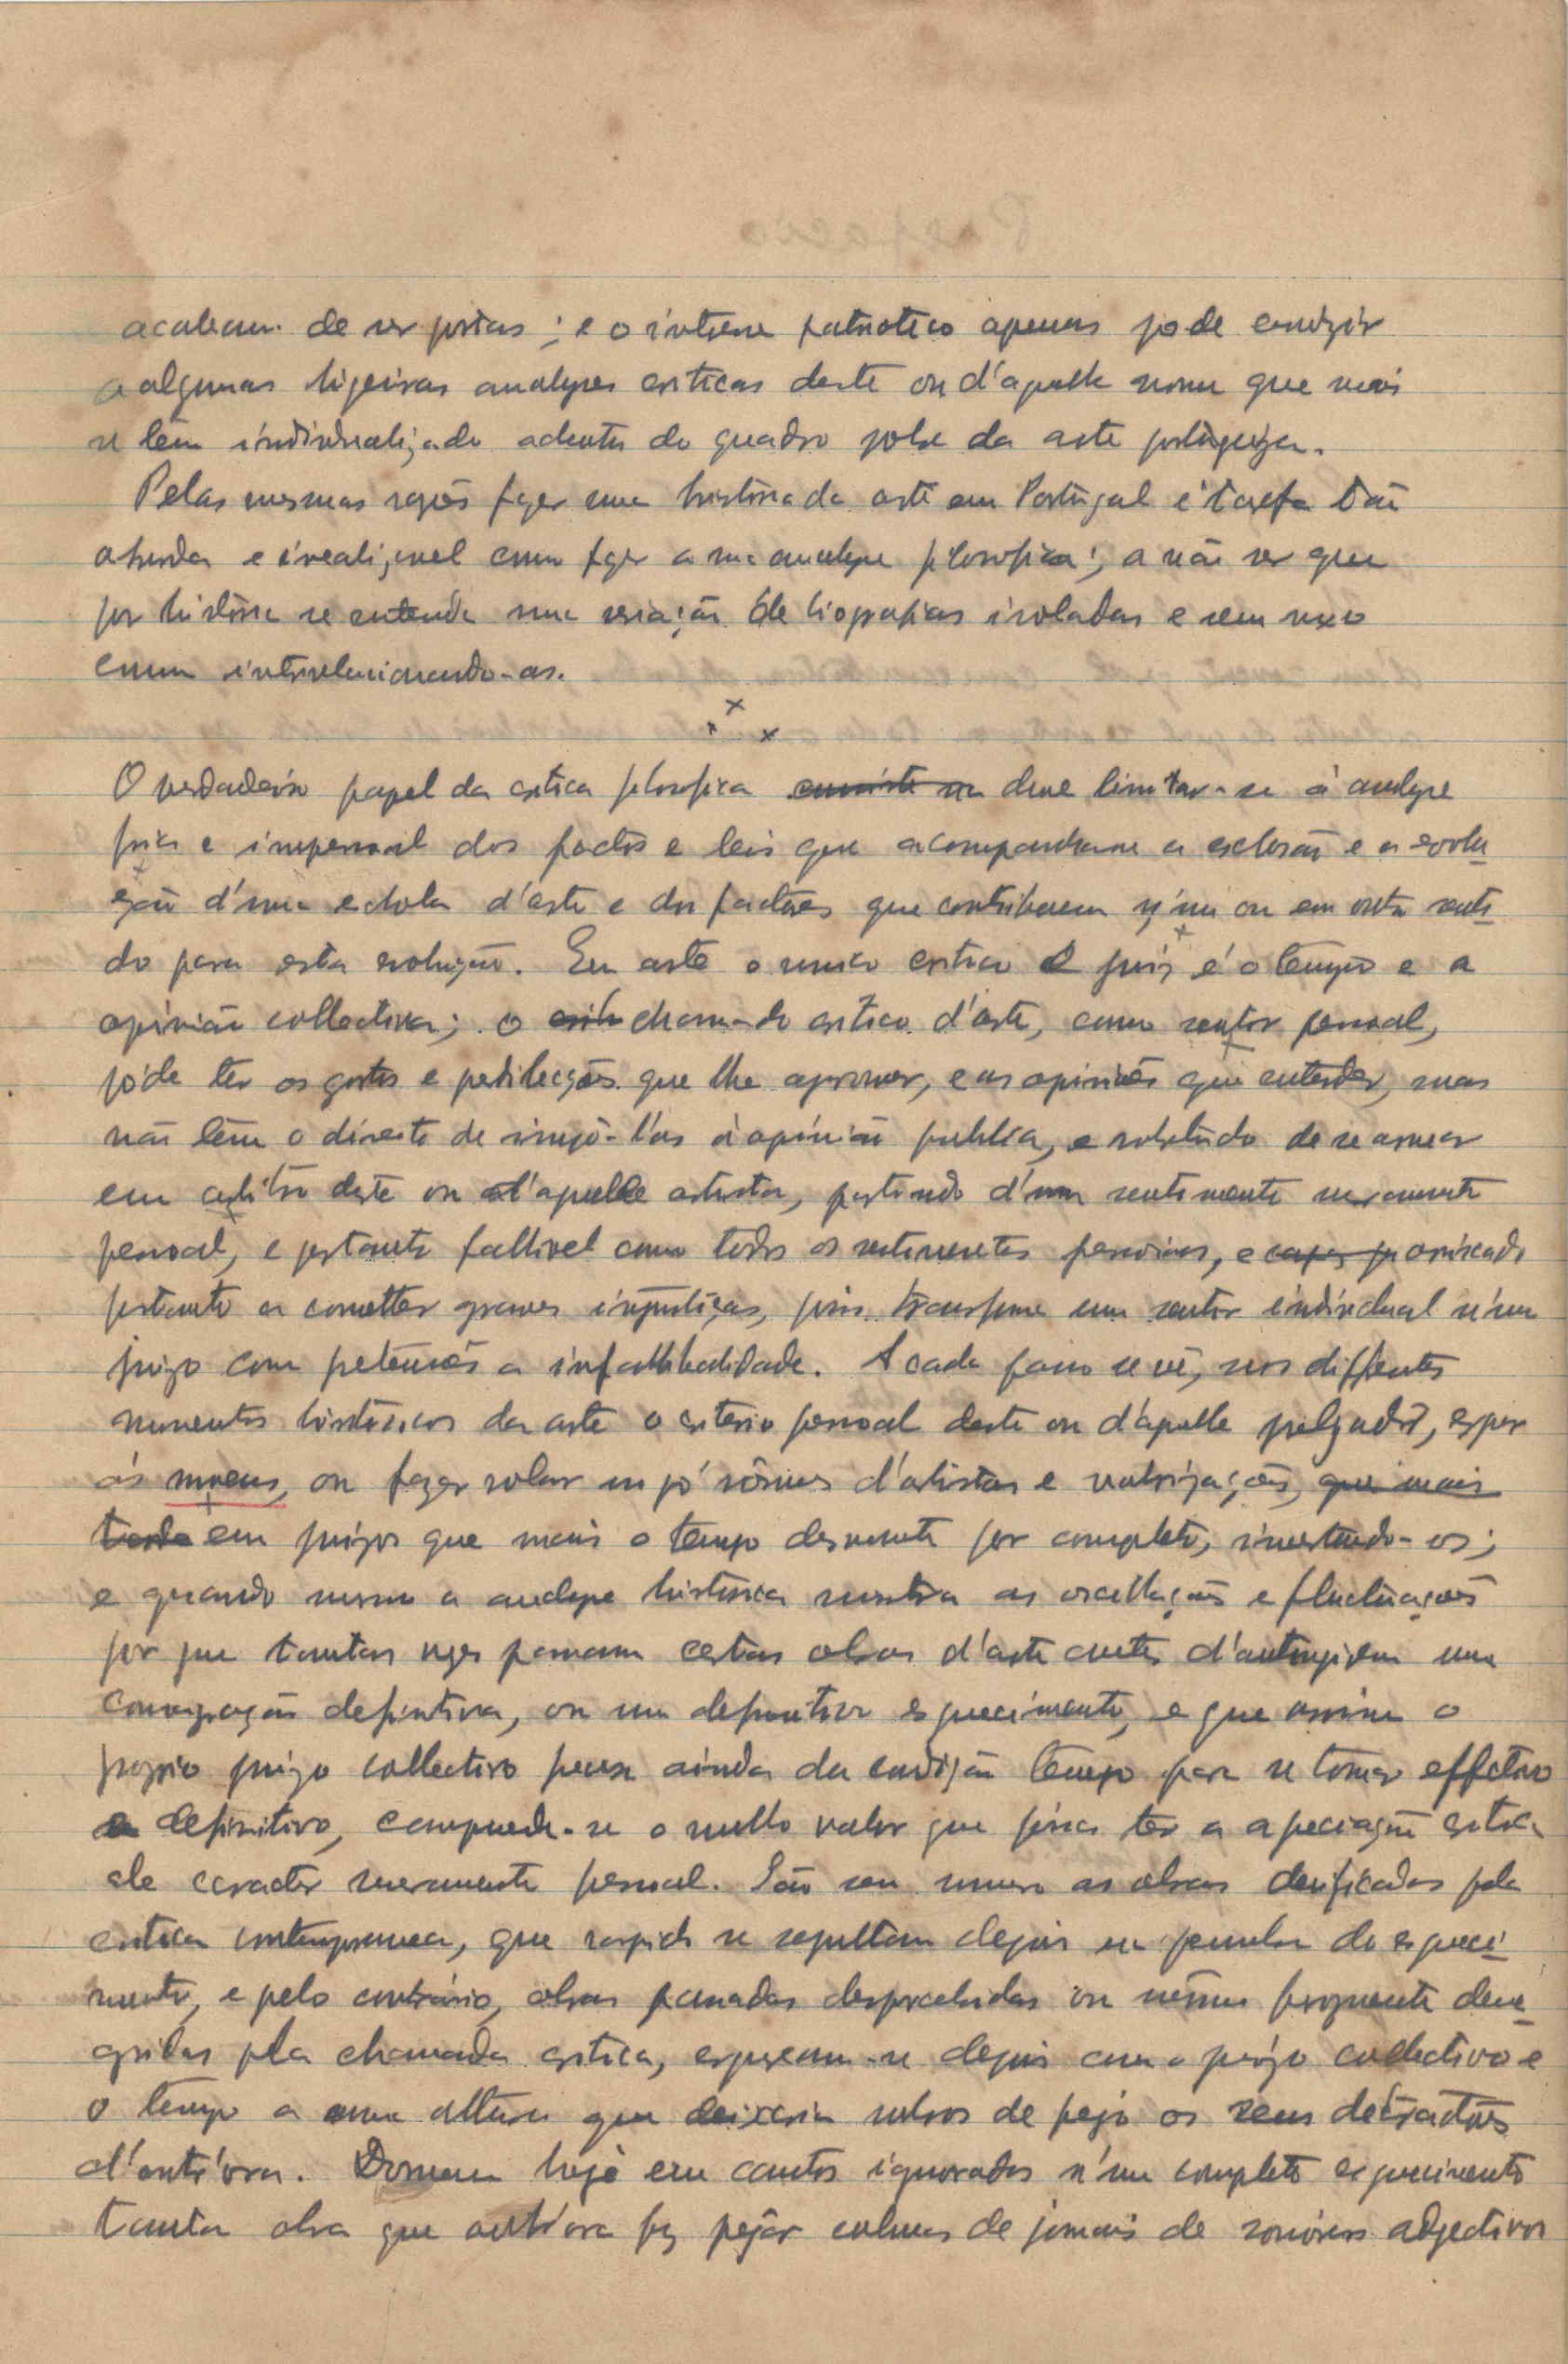 acabam de ser postas; e o interesse patriotico apenas pode conduzir
a algumas ligeiras analyses criticas deste ou d'aquelle nome que mais
se têm individualizado adentro do quadro pobre da arte portugueza.
Pelas mesmas rasões fazer uma história da arte em Portugal é tarefa tão
absurda e irrealizavel como fazer a sua analyse filosofica; a não ser que
por história se entenda uma seriação de biografias isoladas e sem nexo
comum interrelacionando-as.
x x x
O verdadeiro papel da critica filosofica consiste na deve limitar-se á analyse
fria e impessoal dos factos e leis que acompanharam a eclosão e a evolu
ção d'uma escola d'arte e dos factores que contribuem n'um ou em outro senti
do para esta evolução. Em arte o unico critico e juiz é o tempo e a
opinião collectiva; o chamado critico d'arte, como sentir pessoal,
póde ter os gostos e predilecções que lhe aprouver, e as opiniões que entender, mas
não têm o direito de impô-l'as á opinião publica, e sobretudo de se arvorar
em arbitro deste ou d'aquelle artista, partindo d'um sentimento meramente
pessoal, e portanto fallivel como todos os sentimentos pessoaes, e arriscado
portanto a cometter graves injustiças, pois transforma um sentir individual n'um
juizo com pretensões a infallibilidade. A cada passo se vê, nos differentes
momentos históricos da arte o criterio pessoal deste ou d'aquelle julgador, erguer
ás nuvens, ou fazer rolar no pó nomes d'artistas e valorizações, que mais
tarde em juizos que mais o tempo desmente por completo, invertendo-os;
e quando mesmo a analyse histórica mostra as oscillações e fluctuações
por que tantas vezes passaram certas obras d'arte antes d'attingirem uma
consagração definitiva, ou um definitivo esquecimento, e que assim o
proprio juizo collectivo precisa ainda da condição tempo para se tornar effectivo
e definitivo, comprehende-se o nullo valor que possa ter a apreciação critica
de caracter meramente pessoal. São sem numero as obras deificadas pela
critica contemporanea, que rapido se sepultam depois na penumbra do esqueci
mento, e pelo contrário, obras passadas despercebidas ou mesmo fortemente dene
gridas pela chamada critica, ergueram-se depois com o juizo collectivo e
o tempo a uma altura que deixaria rubros de pejo os seus detractores
d'outr'ora. Dormem hoje em cantos ignorados n'um completo esquecimento
tanta obra que outr'ora fez pejar colunas de jornais de sonóros adjectivos